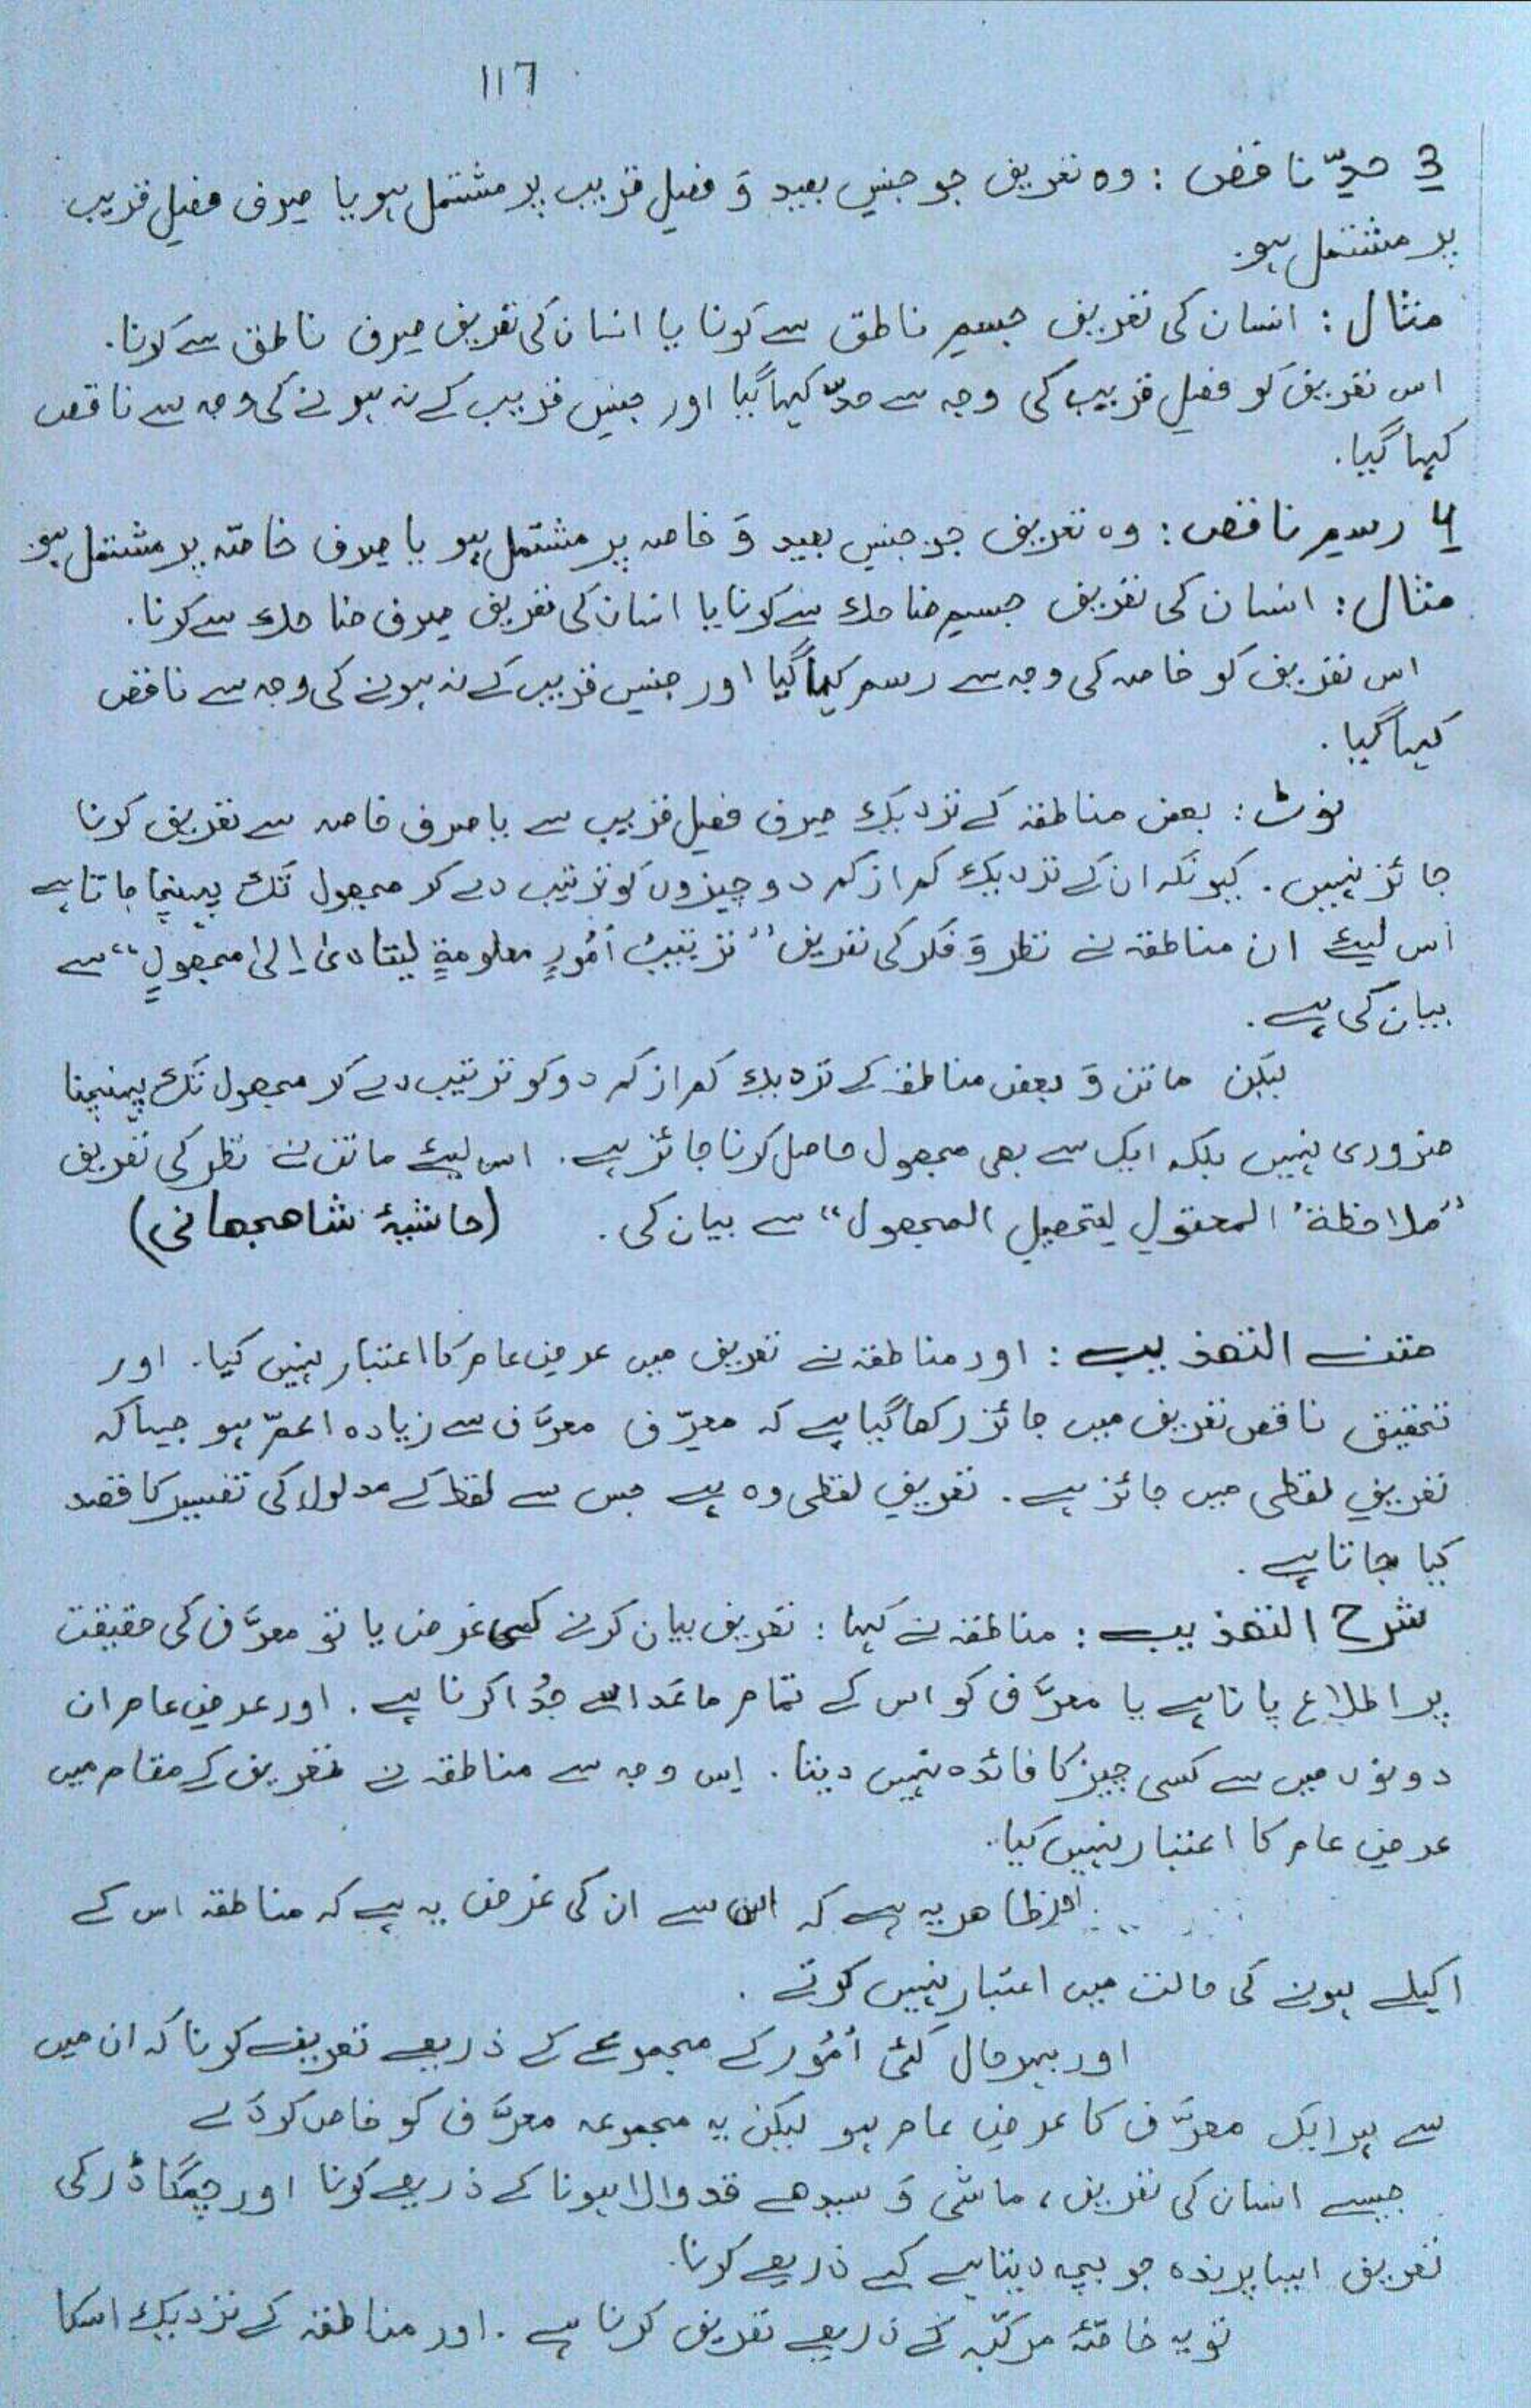 117
3 حدِّ ناقص : وہ تعریف جو جنسِ بعید وَ فصلِ قریب پر مشتمل ہو یا صرف فصلِ قریب
پر مشتمل ہو.
مثال : انسان کی تعریف جسمِ ناطق سے کرنا یا انسان کی تعریف صرف ناطق سے کرنا.
اس تعریف کو فصلِ قریب کی وجہ سے حدّ کہا گیا اور جنسِ قریب کے نہ ہونے کی وجہ سے ناقص
کہا گیا.
4 رسمِ ناقص : وہ تعریف جو جنسِ بعید وَ خاصہ پر مشتمل ہو یا صرف خاصّہ پر مشتمل ہو.
مثال : انسان کی تعریف جسمِ ضاحك سے کرنا یا انسان کی تعریف صرف ضاحك سے کرنا.
اس تعریف کو خاصہ کی وجہ سے رسم کہا گیا اور جنسِ قریب کے نہ ہونے کی وجہ سے ناقص
کہا گیا.
نوٹ : بعض مناطقہ کے نزدیک صرف فصلِ قریب سے یا صرف خاصہ سے تعریف کرنا
جائز نہیں. کیونکہ ان کے نزدیک کم از کم دو چیزوں کو ترتیب دے کر مجھول تک پہنچا جاتا ہے
اس لیئے ان مناطقہ نے نظر وَ فکر کی تعریف ”ترتیبُ اُمُورٍ معلومةٍ لیتادیٰ اِلیٰ مجھولٍ“ سے
بیان کی ہے.
لیکن ماتن وَ بعض مناطقہ کے نزدیک کم از کم دو کو ترتیب دے کر مجھول تک پہنچنا
ضروری نہیں بلکہ ایک سے بھی مجھول حاصل کرنا جائز ہے. اس لیئے ماتن نے نظر کی تعریف
”ملاحظةُ المعقولِ لِتحصیلِ المجھول“ سے بیان کی. (حاشیۂ شاھجھانی)
متن التھذیب : اور مناطقہ نے تعریف میں عرضِ عام کا اعتبار نہیں کیا. اور
تحقیق ناقص تعریف میں جائز رکھا گیا ہے کہ معرِّف معرَّف سے زیادہ اعمّ ہو جیسا کہ
تعریفِ لفظی میں جائز ہے. تعریفِ لفظی وہ ہے جس سے لفظ کے مدلول کی تفسیر کا قصد
کیا جاتا ہے.
شرح التھذیب : مناطقہ نے کہا : تعریف بیان کرنے کی غرض یا تو معرَّف کی حقیقت
پر اطلاع پانا ہے یا معرَّف کو اس کے تمام ماعَدا سے جُدا کرنا ہے. اور عرضِ عام ان
دونوں میں سے کسی چیز کا فائدہ نہیں دیتا. اِس وجہ سے مناطقہ نے تعریف کے مقام میں
عرضِ عام کا اعتبار نہیں کیا.
اور ظاھر یہ ہے کہ اس سے ان کی غرض یہ ہے کہ مناطقہ اس کے
اکیلے ہونے کی حالت میں اعتبار نہیں کرتے.
اور بہر حال کئی اُمُور کے مجموعے کے ذریعے تعریف کرنا کہ ان میں
سے ہر ایک معرَّف کا عرضِ عام ہو لیکن یہ مجموعہ معرَّف کو خاص کردَے
جیسے انسان کی تعریف، ماشی وَ سیدھے قد والا ہونا کے ذریعے کرنا اور چمگاڈر کی
تعریف ایسا پرندہ جو بچہ دیتا ہے کے ذریعے کرنا.
تو یہ خاصّۂ مرکّبہ کے ذریعے تعریف کرنا ہے. اور مناطقہ کے نزدیک اسکا